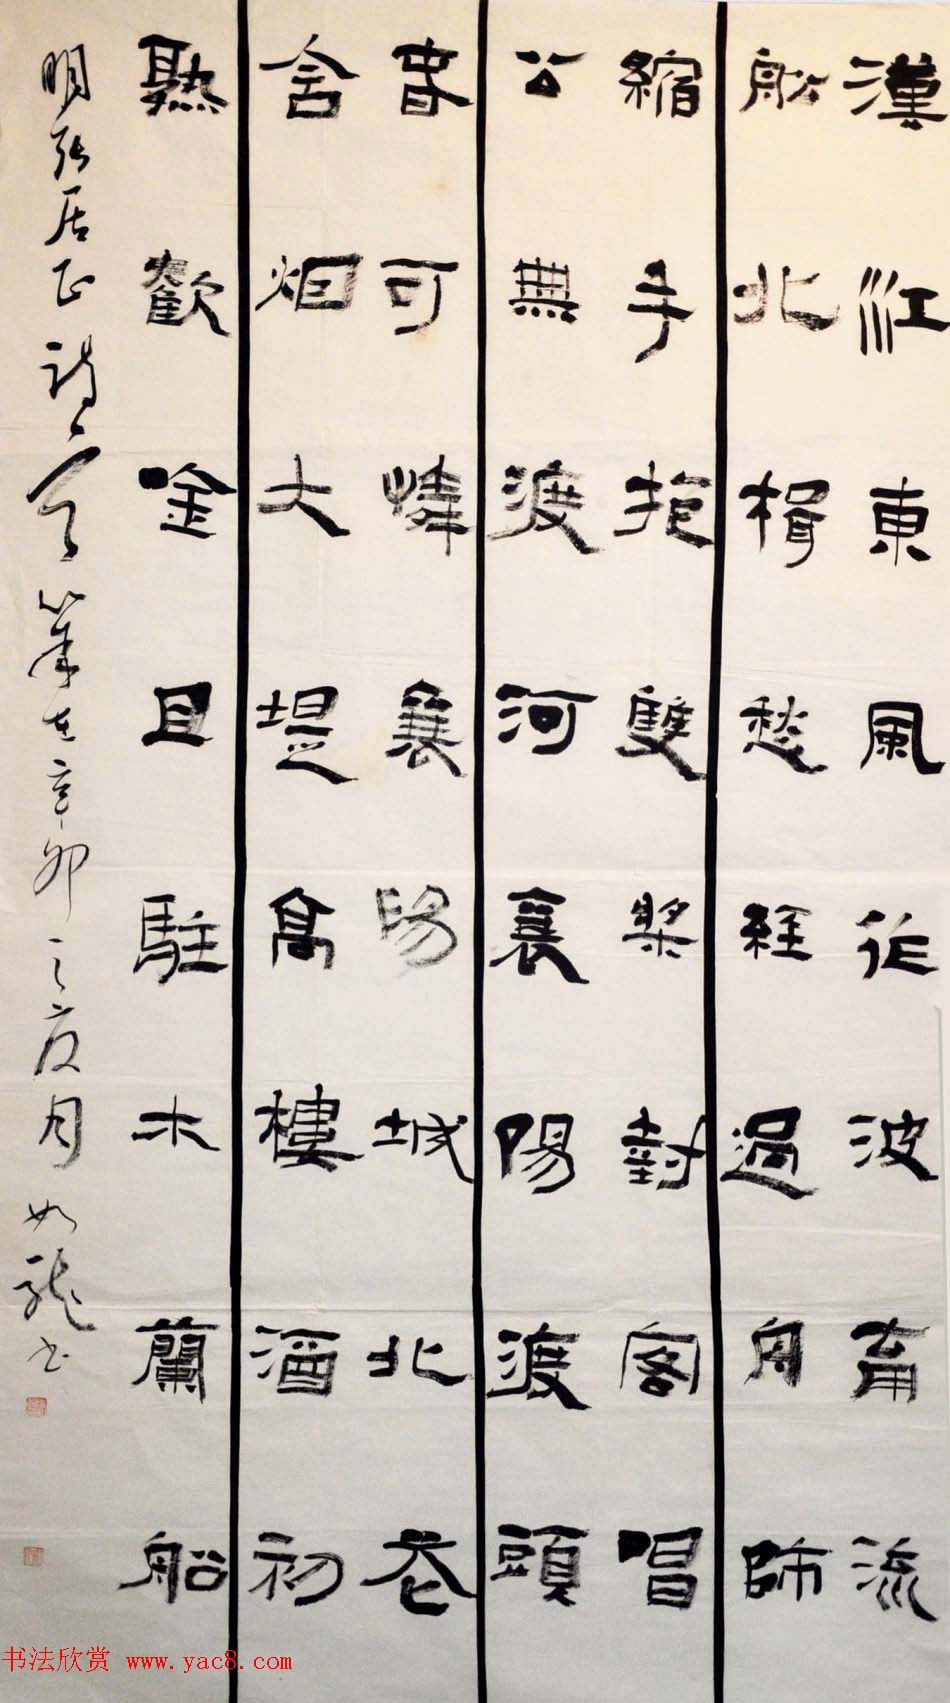 漢江東風作波南流
船北楫愁經過舟師
縮手抱雙槳對客唱
公無渡河襄陽渡頭
春可憐襄陽城北花
含烟大堤高樓酒初
熟歡唫且駐木蘭船
明張居正詩 辛卯之夏月 如龍書
书法欣赏 www.yac8.com